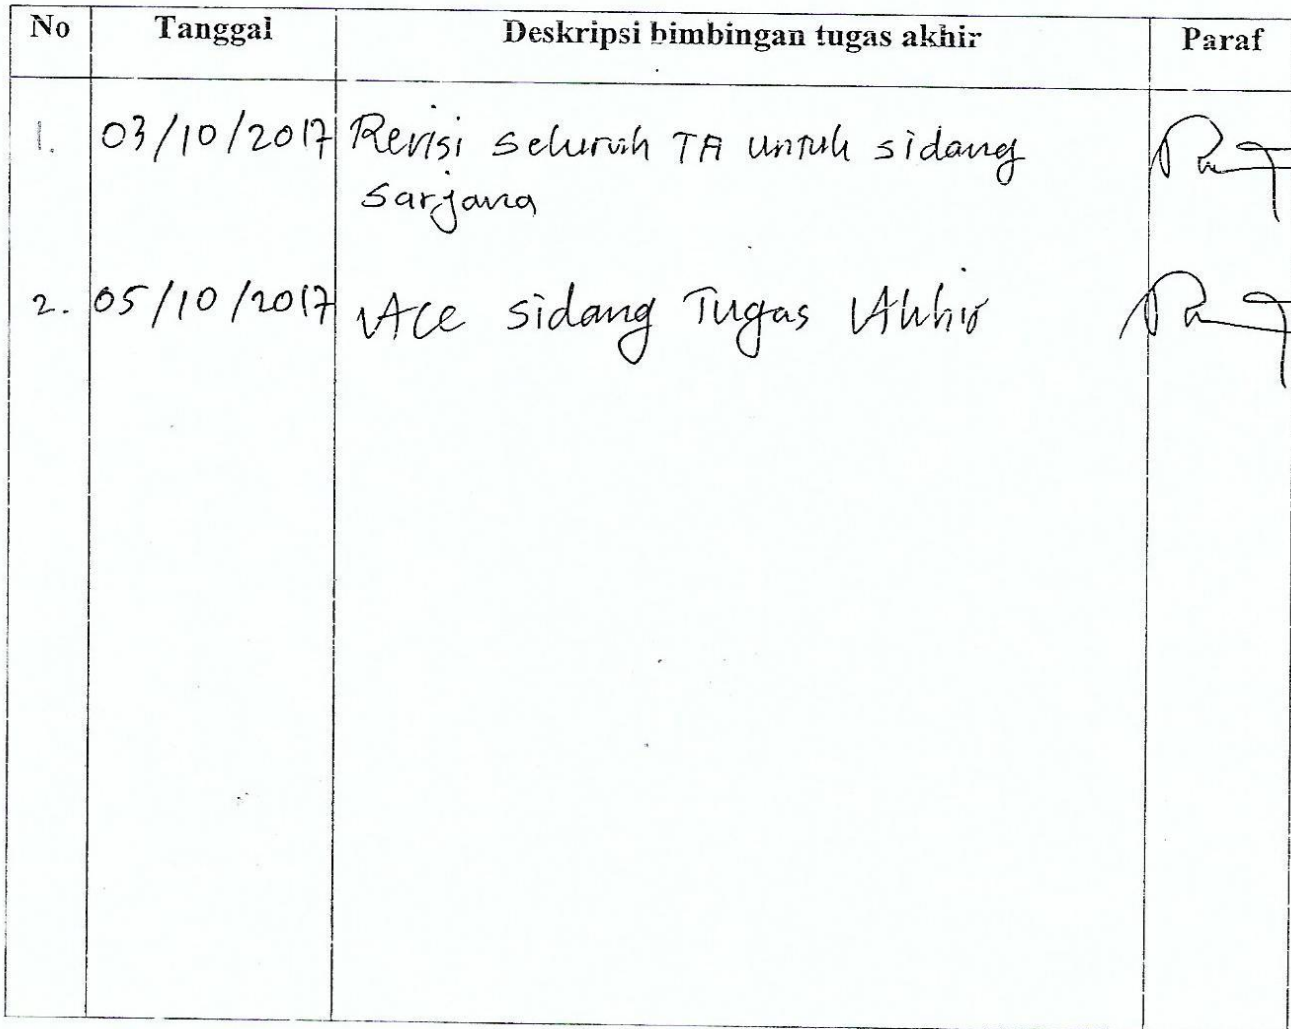 No Tanggal Deskripsi bimbingan tugas akhir Paraf
1. 03/10/2017 Revisi seluruh TA untuk sidang
sarjana
2. 05/10/2017 Acc sidang Tugas Akhir